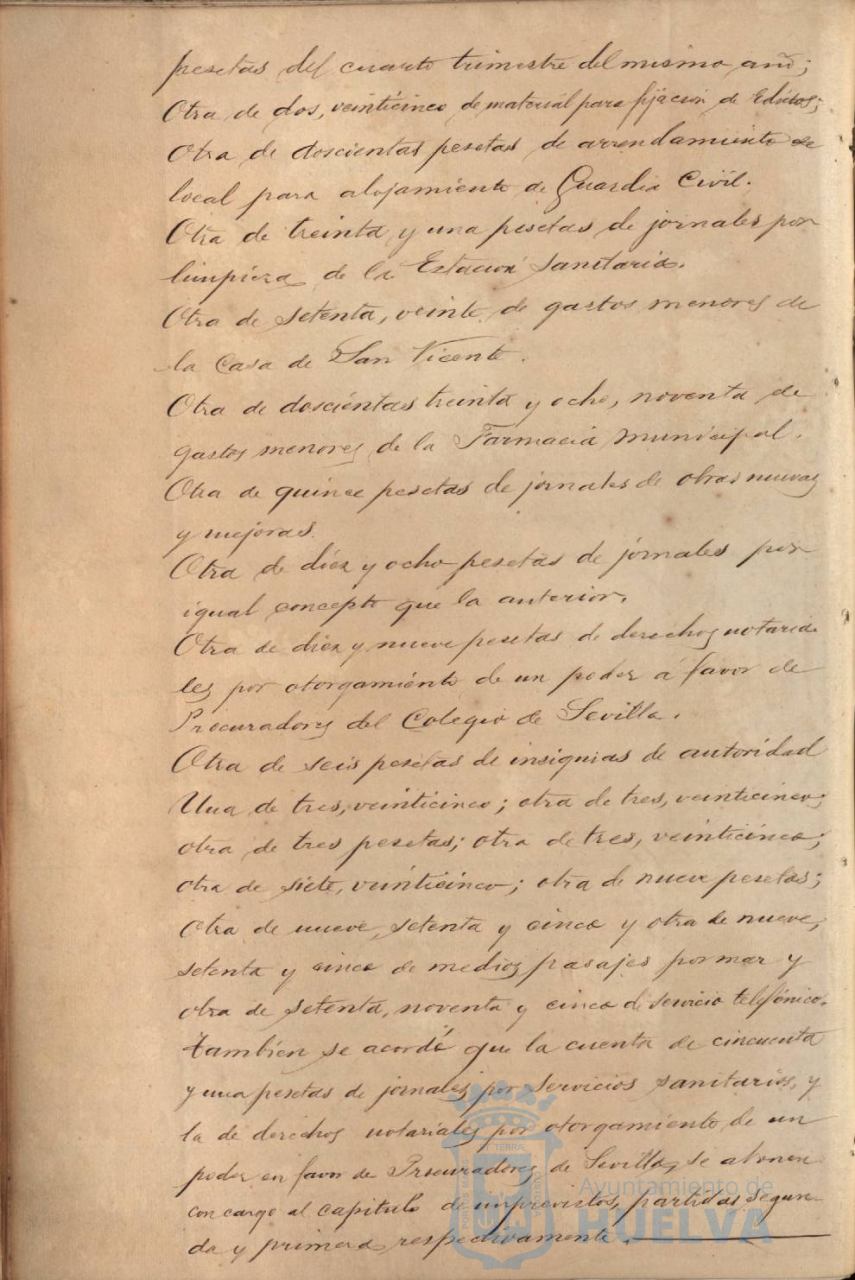 pesetas del cuarto trimestre del mismo año;
Otra de dos, veinticinco de material para fijación de Edictos;
Otra de doscientas pesetas de arrendamiento de
local para alojamiento de Guardia Civil.
Otra de treinta y una pesetas de jornales por
limpieza de la Estación Sanitaria.
Otra de setenta, veinte, de gastos menores de
la Casa de San Vicente.
Otra de doscientas treinta y ocho, noventa de
gastos menores de la Farmacia Municipal.
Otra de quince pesetas de jornales de obras nuevas
y mejoras.
Otra de diez y ocho pesetas de jornales por
igual concepto que la anterior.
Otra de diez y nueve pesetas de derechos notaria-
les por otorgamiento de un poder á favor de
Procuradores del Colegio de Sevilla.
Otra de seis pesetas de insignias de autoridad
Una de tres, veinticinco; otra de tres, veinticinco;
otra de tres pesetas; otra de tres, veinticinco;
otra de siete, veinticinco; otra de nueve pesetas;
otra de nueve, setenta y cinco y otra de nueve,
setenta y cinco de medios pasajes por mar y
otra de setenta, noventa y cinco de servicio telefónico.
también se acordó que la cuenta de cincuenta
y una pesetas de jornales por servicios sanitarios, y
la de derechos notariales por otorgamiento de un
poder en favor de Procuradores de Sevilla, se abonen
con cargo al capítulo de imprevistos, partidas segun-
da y primera respectivamente.
Ayuntamiento de
HUELVA